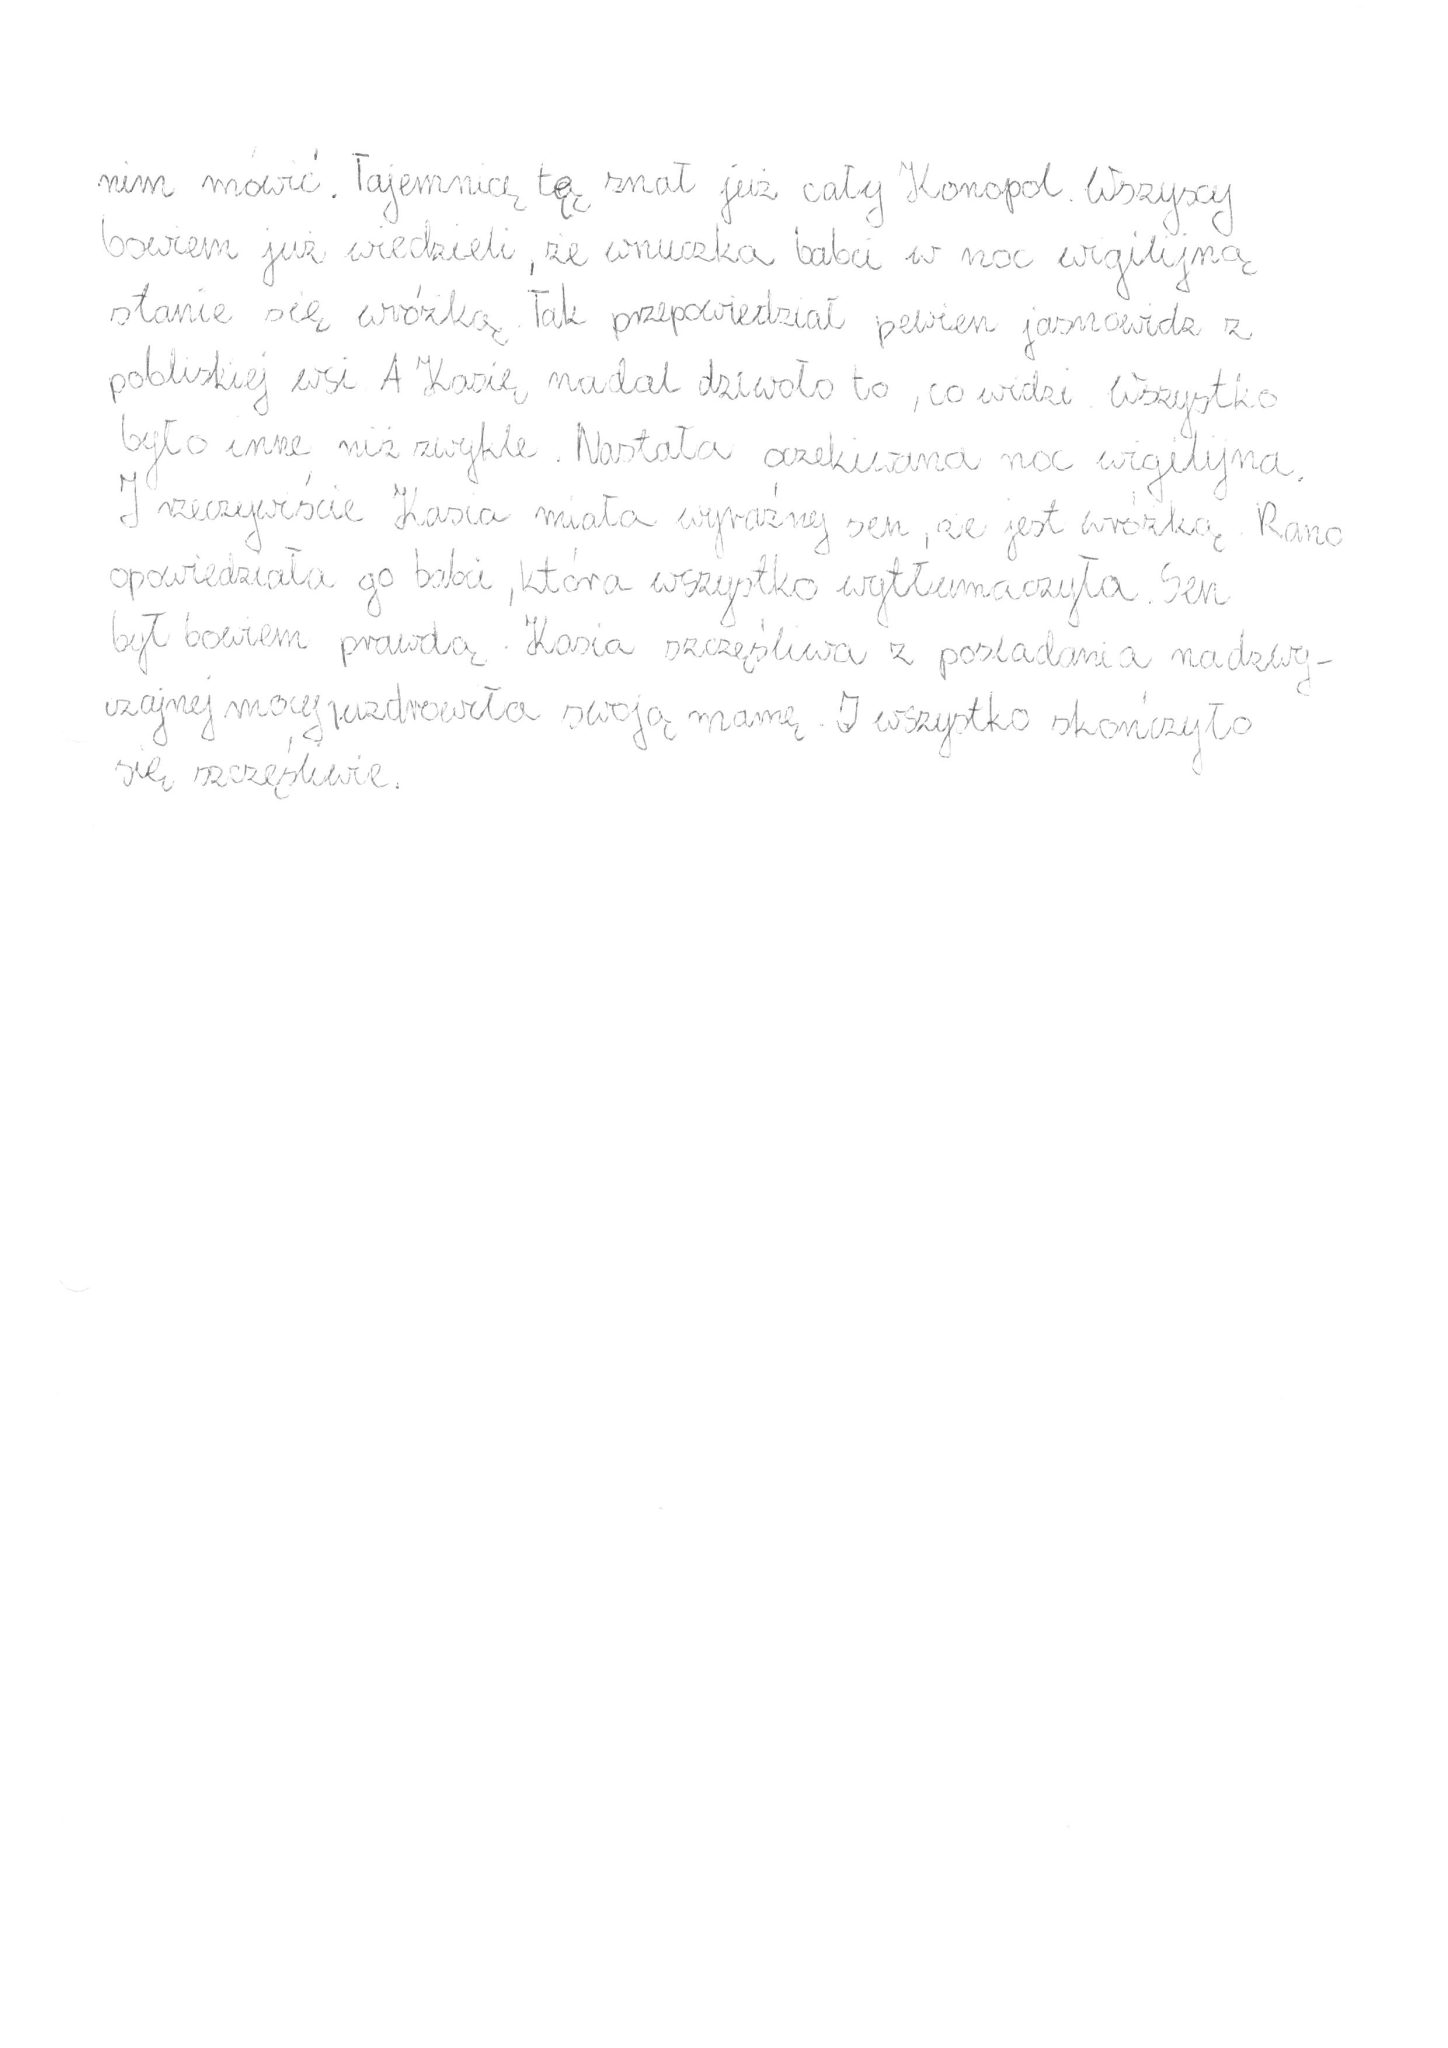 nim mówić. Tajemnicę tę znał już cały Konopol. Wszyscy
bowiem już wiedzieli, że wnuczka babci w noc wigilijną
stanie się wróżką. Tak przepowiedział pewien jasnowidz z
pobliskiej wsi. A Kasię nadal dziwoło to, co widzi. Wszystko
było inne niż zwykle. Nastała oczekiwana noc wigilijna.
I rzeczywiście Kasia miała wyraźnej sen, że jest wróżką. Rano
opowiedziała go babci, która wszystko wytłumaczyła. Sen
był bowiem prawdą. Kasia szczęśliwa z posiadania nadzwy-
czajnej mocy, uzdrowiła swoją mamę. I wszystko skończyło
się szczęśliwie.